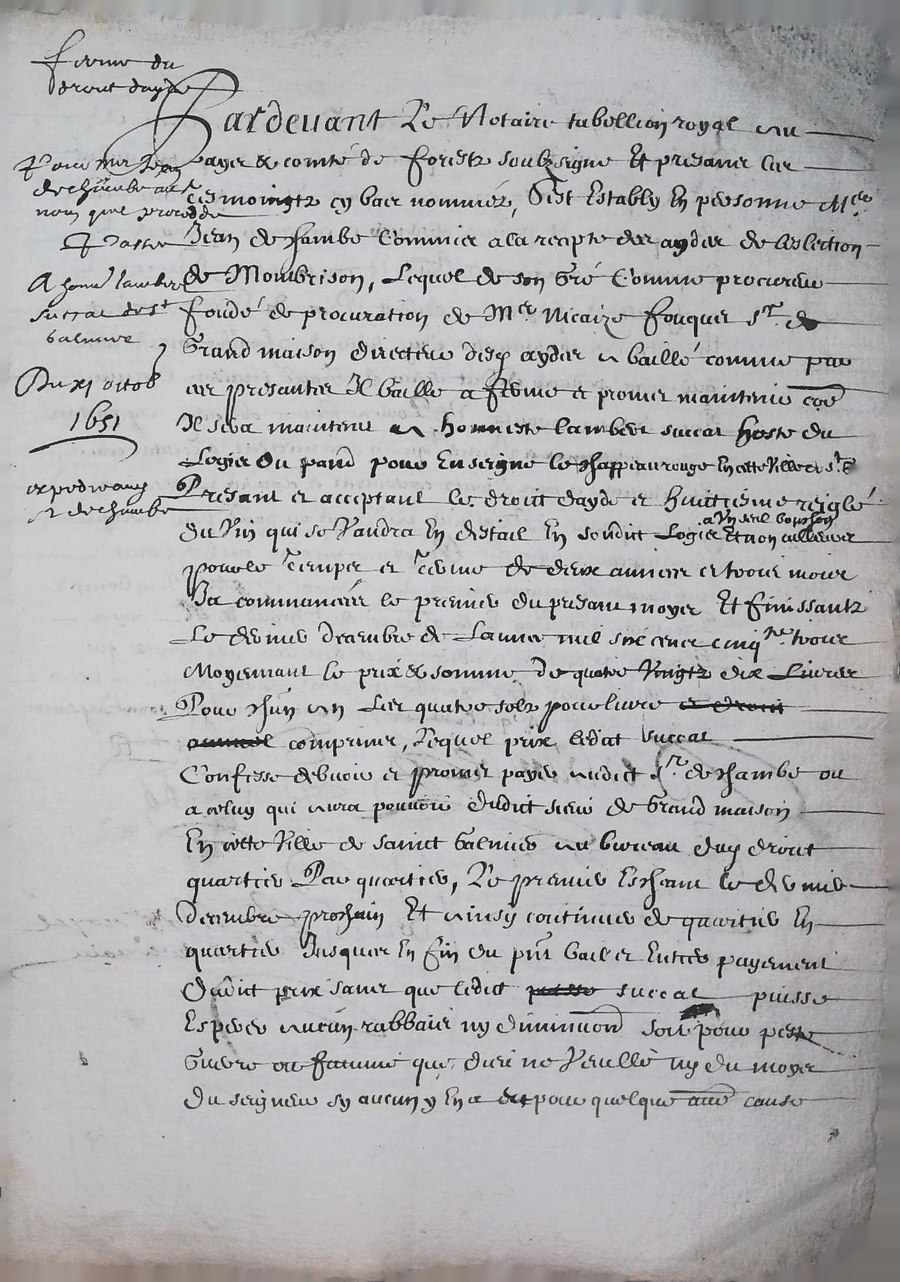 ferme du
drout dayde
Pardeuant Le Notaire tabellion royal au
payes & comté de forestz soubzsigne Et presance les
tesmoingtz cy bas nommez, S'est Estably En personne Me
Jean de chambe Commis a la recepte des aydes de leslection
de Monbrison, Lequel de son Gré Comme procureur
fondé de procuration de Me Nicaize fouques sr. de
Grand maison directeur desd aydes a baillé comme par
ces presantes Il baille a ferme et promet maintenir coe
Il sera maintenu a honneste lambert succat hoste du
Logis Ou pand pour Enseigne le chappeau rouge En cette Ville de st. G
Presant et acceptant le droit dayde et huittiesme reiglé
du Vin qui se Vandra En destail En sondict Logis Et non ailleurs
a Vn seul bouchon
pour le temps et terme de deux annees et trois mois
Ja commancées le premier du presant moys Et finissantz
Le dernier decembre de Lannee mil six cens cinqte trois
Moyennant le prix & somme de quatre Vingtz dix Livres
Pour chun an Les quatre solz pour livre et droit
annuel comprins, Lequel prix ledat succat
Confesse debuoir et promet payer audict sr. de chambe ou
a celuy qui aura pouuoir dudict sieur de Grand maison
En cette Ville de sainct Galmier au bureau dud droit
quartier Par quartier, Le premier Escheant le dernier
decembre prochain Et ainsy continuer de quartier En
quartier Jusques En fin du pnt bail et Entier payement
Dudict prix sans que ledict puisse succat puisse
Esperer aucun rabbais ny diminuon soit pour peste
Guerre ou famine que dieu ne Veuille ny du moys
Du seigneur sy aucun y En a et pour quelque autre cause
Pour Mre Jean
de chambe au
nom quil procedde
A home lambert
succat de st
galmier
Du xj octob
1651
expedie aud
sr de chambe